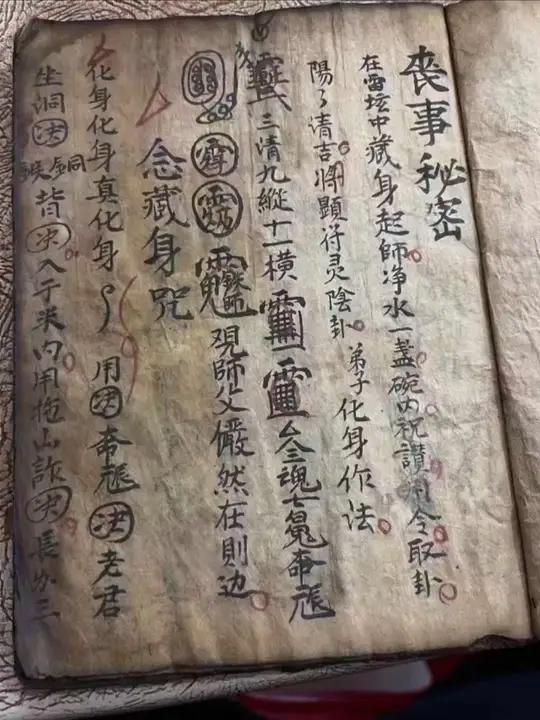 喪事秘密
在雷坛中藏身起師净水一盏碗内祝讃用令取卦
陽了清吉將顯符灵陰卦 弟子化身作法
三清九縱十一橫 亽三魂七
覌師父儼然在則边
念藏身咒
化身化身真化身 用决 决老君
坐洞决 銅皆决入于米内用拖山訣决長为三